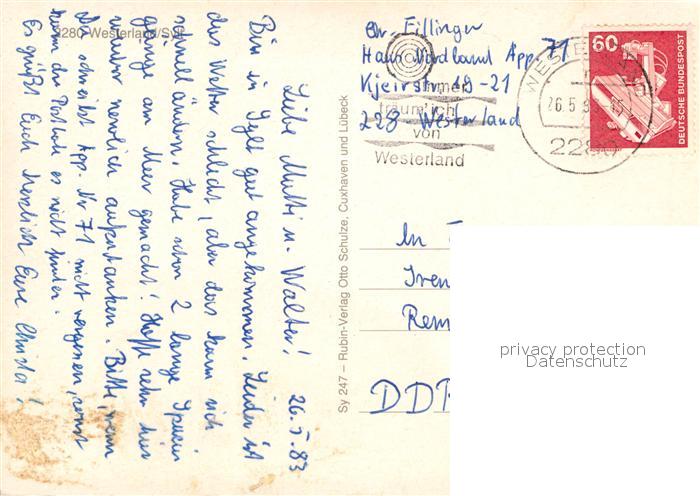 2280 Westerland/Sylt
Liebe Mutti u. Walter! 26.5.83
Bin in Sylt gut angekommen. Leider ist
das Wetter schlecht, aber das kann sich
schnell ändern. Habe schon 2 lange Spazier
gänge am Meer gemacht! Hoffe sehr hier
wieder nervlich aufzutanken. Bitte, wenn
Du schreibst App. Nr 71 nicht vergessen, sonst
kann der Postbote es nicht finden.
Es grüßt Euch herzlich Eure Christa!
Sy 247 – Rubin-Verlag Otto Schulze, Cuxhaven und Lübeck
Chr. Fillinger
Haus Nordland App. 71
Kjeirstr. 19-21
228 - Westerland
träum' ich
von
Westerland
WESTERLAND
26.5.
2280
60
DEUTSCHE BUNDESPOST
In
Iren
Rem
DDR
privacy protection
Datenschutz